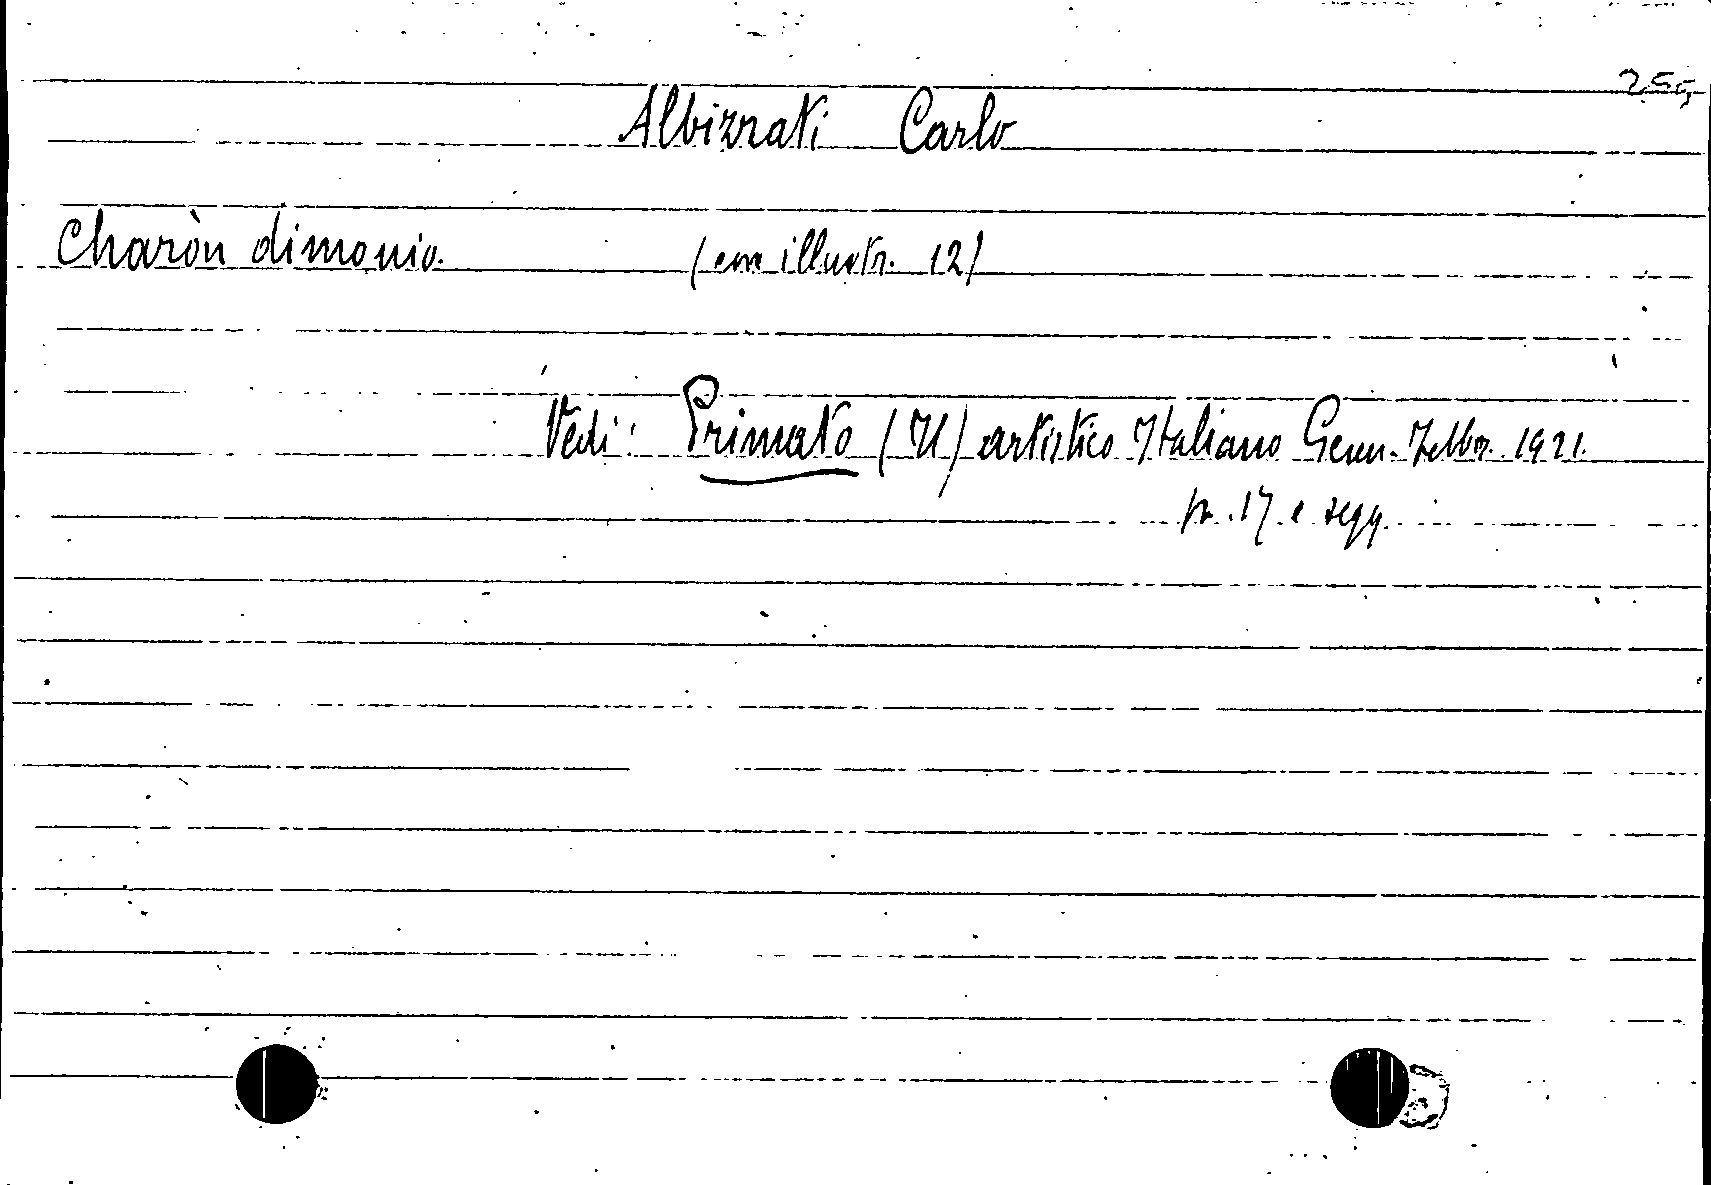 255
Albizzati Carlo
Charòn dimonio. (con illustr. 12)
Vedi: Primato (Il) artistico Italiano Genn. Febbr. 1921.
p. 17 e segg.